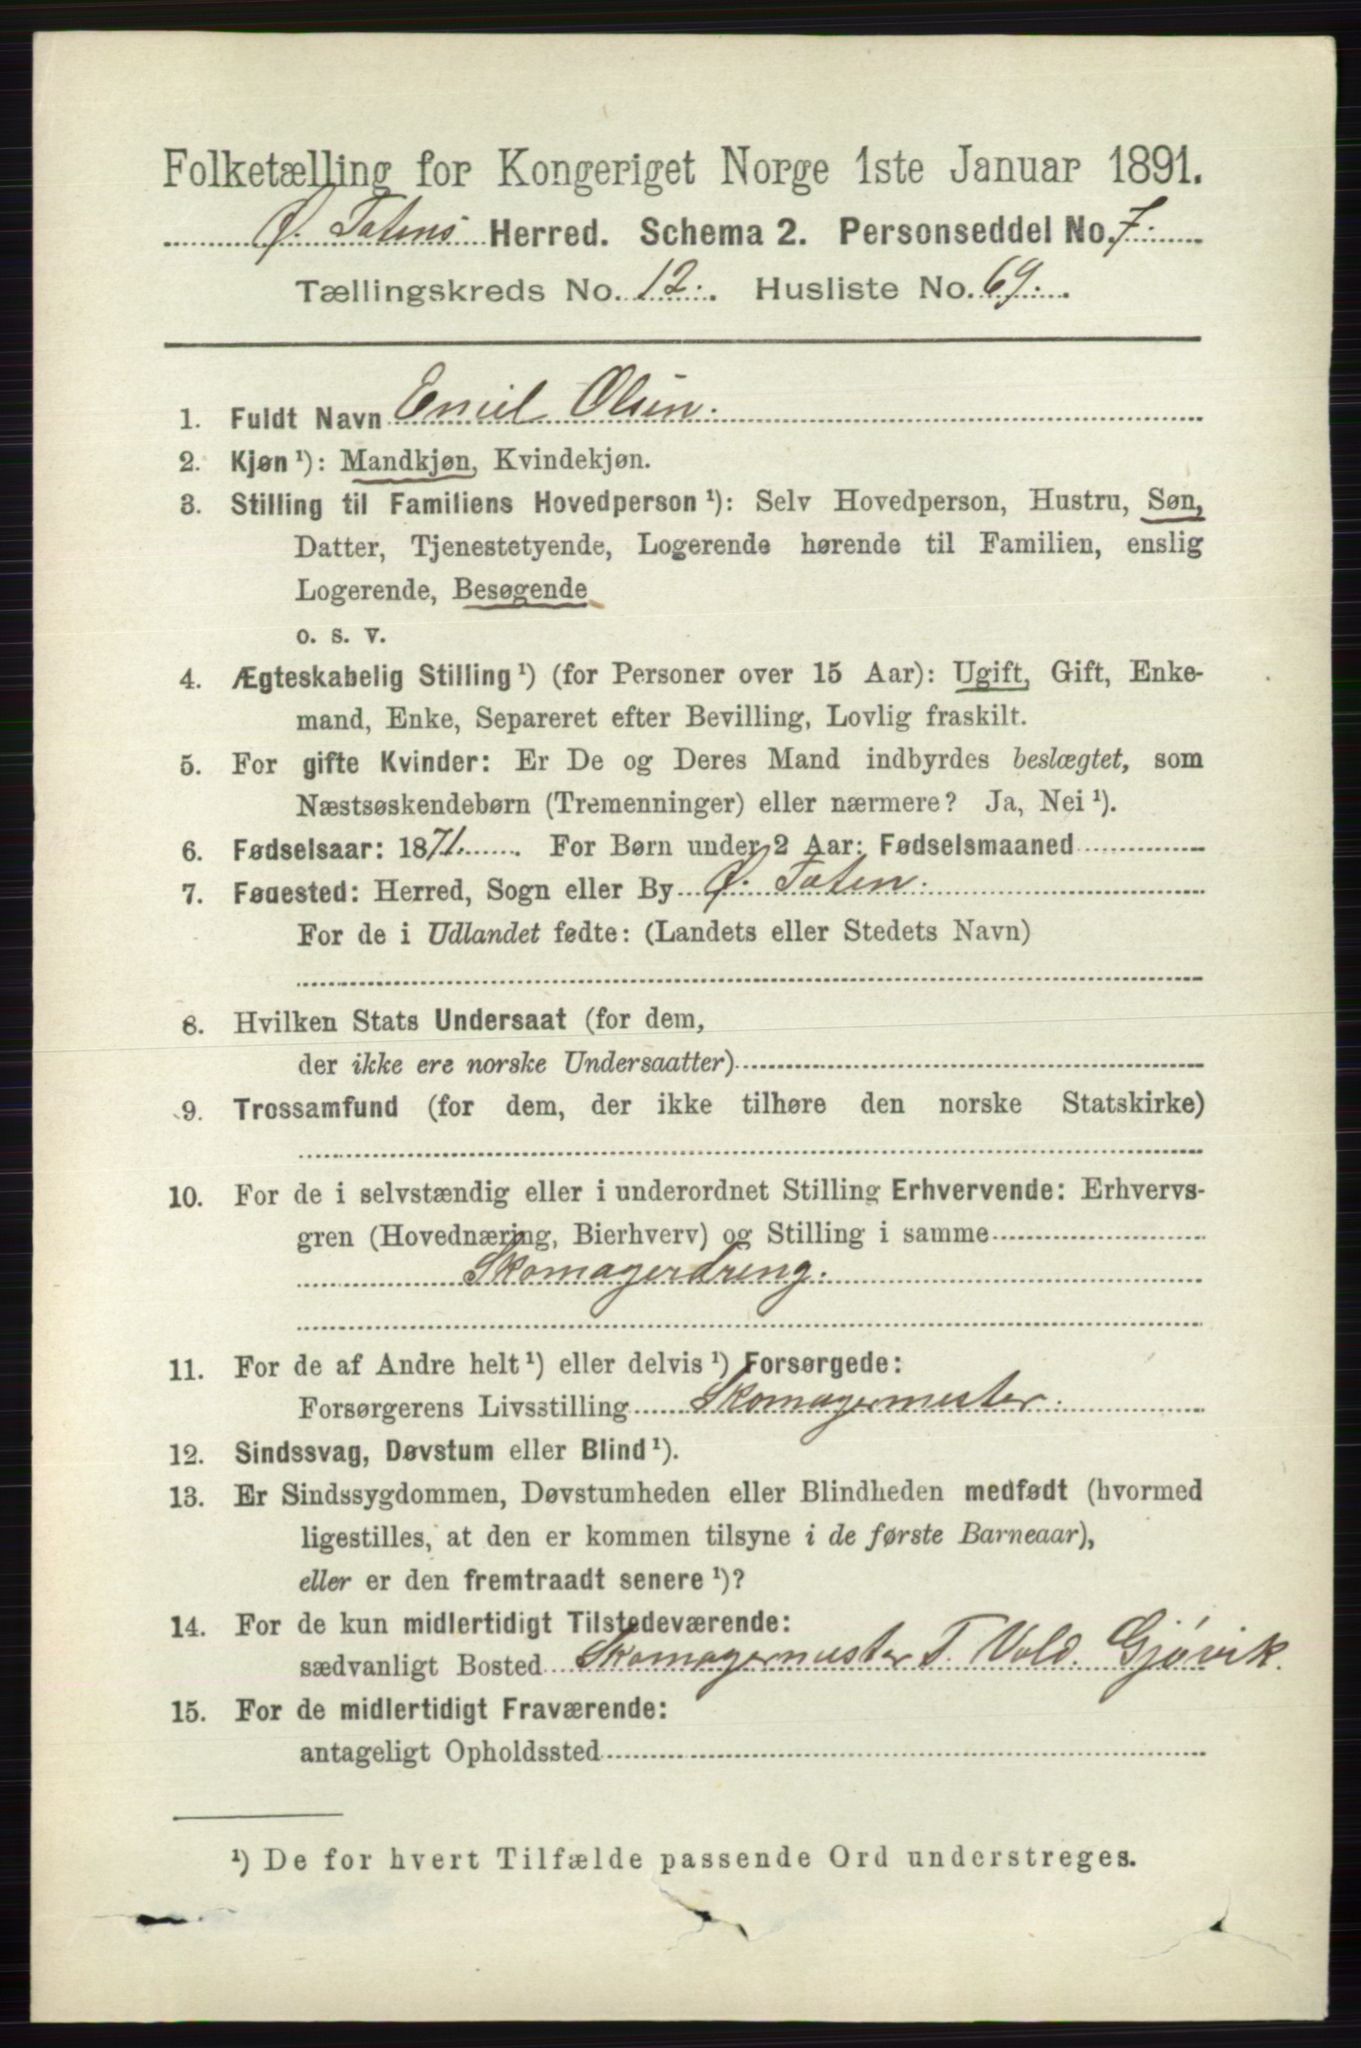 Folketælling for Kongeriget Norge 1ste Januar 1891.
Ø. Totens Herred. Schema 2. Personseddel No. 7.
Tællingskreds No. 12. Husliste No. 69.
1. Fuldt Navn Emil Olsen.
2. Kjøn ¹): Mandkjøn, Kvindekjøn.
3. Stilling til Familiens Hovedperson ¹): Selv Hovedperson, Hustru, Søn,
Datter, Tjenestetyende, Logerende hørende til Familien, enslig
Logerende, Besøgende
o. s. v.
4. Ægteskabelig Stilling ¹) (for Personer over 15 Aar): Ugift, Gift, Enke-
mand, Enke, Separeret efter Bevilling, Lovlig fraskilt.
5. For gifte Kvinder: Er De og Deres Mand indbyrdes beslægtet, som
Næstsøskendebørn (Tremenninger) eller nærmere? Ja, Nei ¹).
6. Fødselsaar: 1871. For Børn under 2 Aar: Fødselsmaaned
7. Føuested: Herred, Sogn eller By Ø. Toten.
For de i Udlandet fødte: (Landets eller Stedets Navn)
8. Hvilken Stats Undersaat (for dem,
der ikke ere norske Undersaatter)
9. Trossamfund (for dem, der ikke tilhøre den norske Statskirke)
10. For de i selvstændig eller i underordnet Stilling Erhvervende: Erhvervs-
gren (Hovednæring, Bierhverv) og Stilling i samme
Skomagerdreng.
11. For de af Andre helt ¹) eller delvis ¹) Forsørgede:
Forsørgerens Livsstilling Skomagermester.
12. Sindssvag, Døvstum eller Blind ¹).
13. Er Sindssygdommen, Døvstumheden eller Blindheden medfødt (hvormed
ligestilles, at den er kommen tilsyne i de første Barneaar),
eller er den fremtraadt senere ¹)?
14. For de kun midlertidigt Tilstedeværende:
sædvanligt Bosted Skomagermester T. Vold. Gjøvik.
15. For de midlertidigt Fraværende:
antageligt Opholdssted
¹) De for hvert Tilfælde passende Ord understreges.